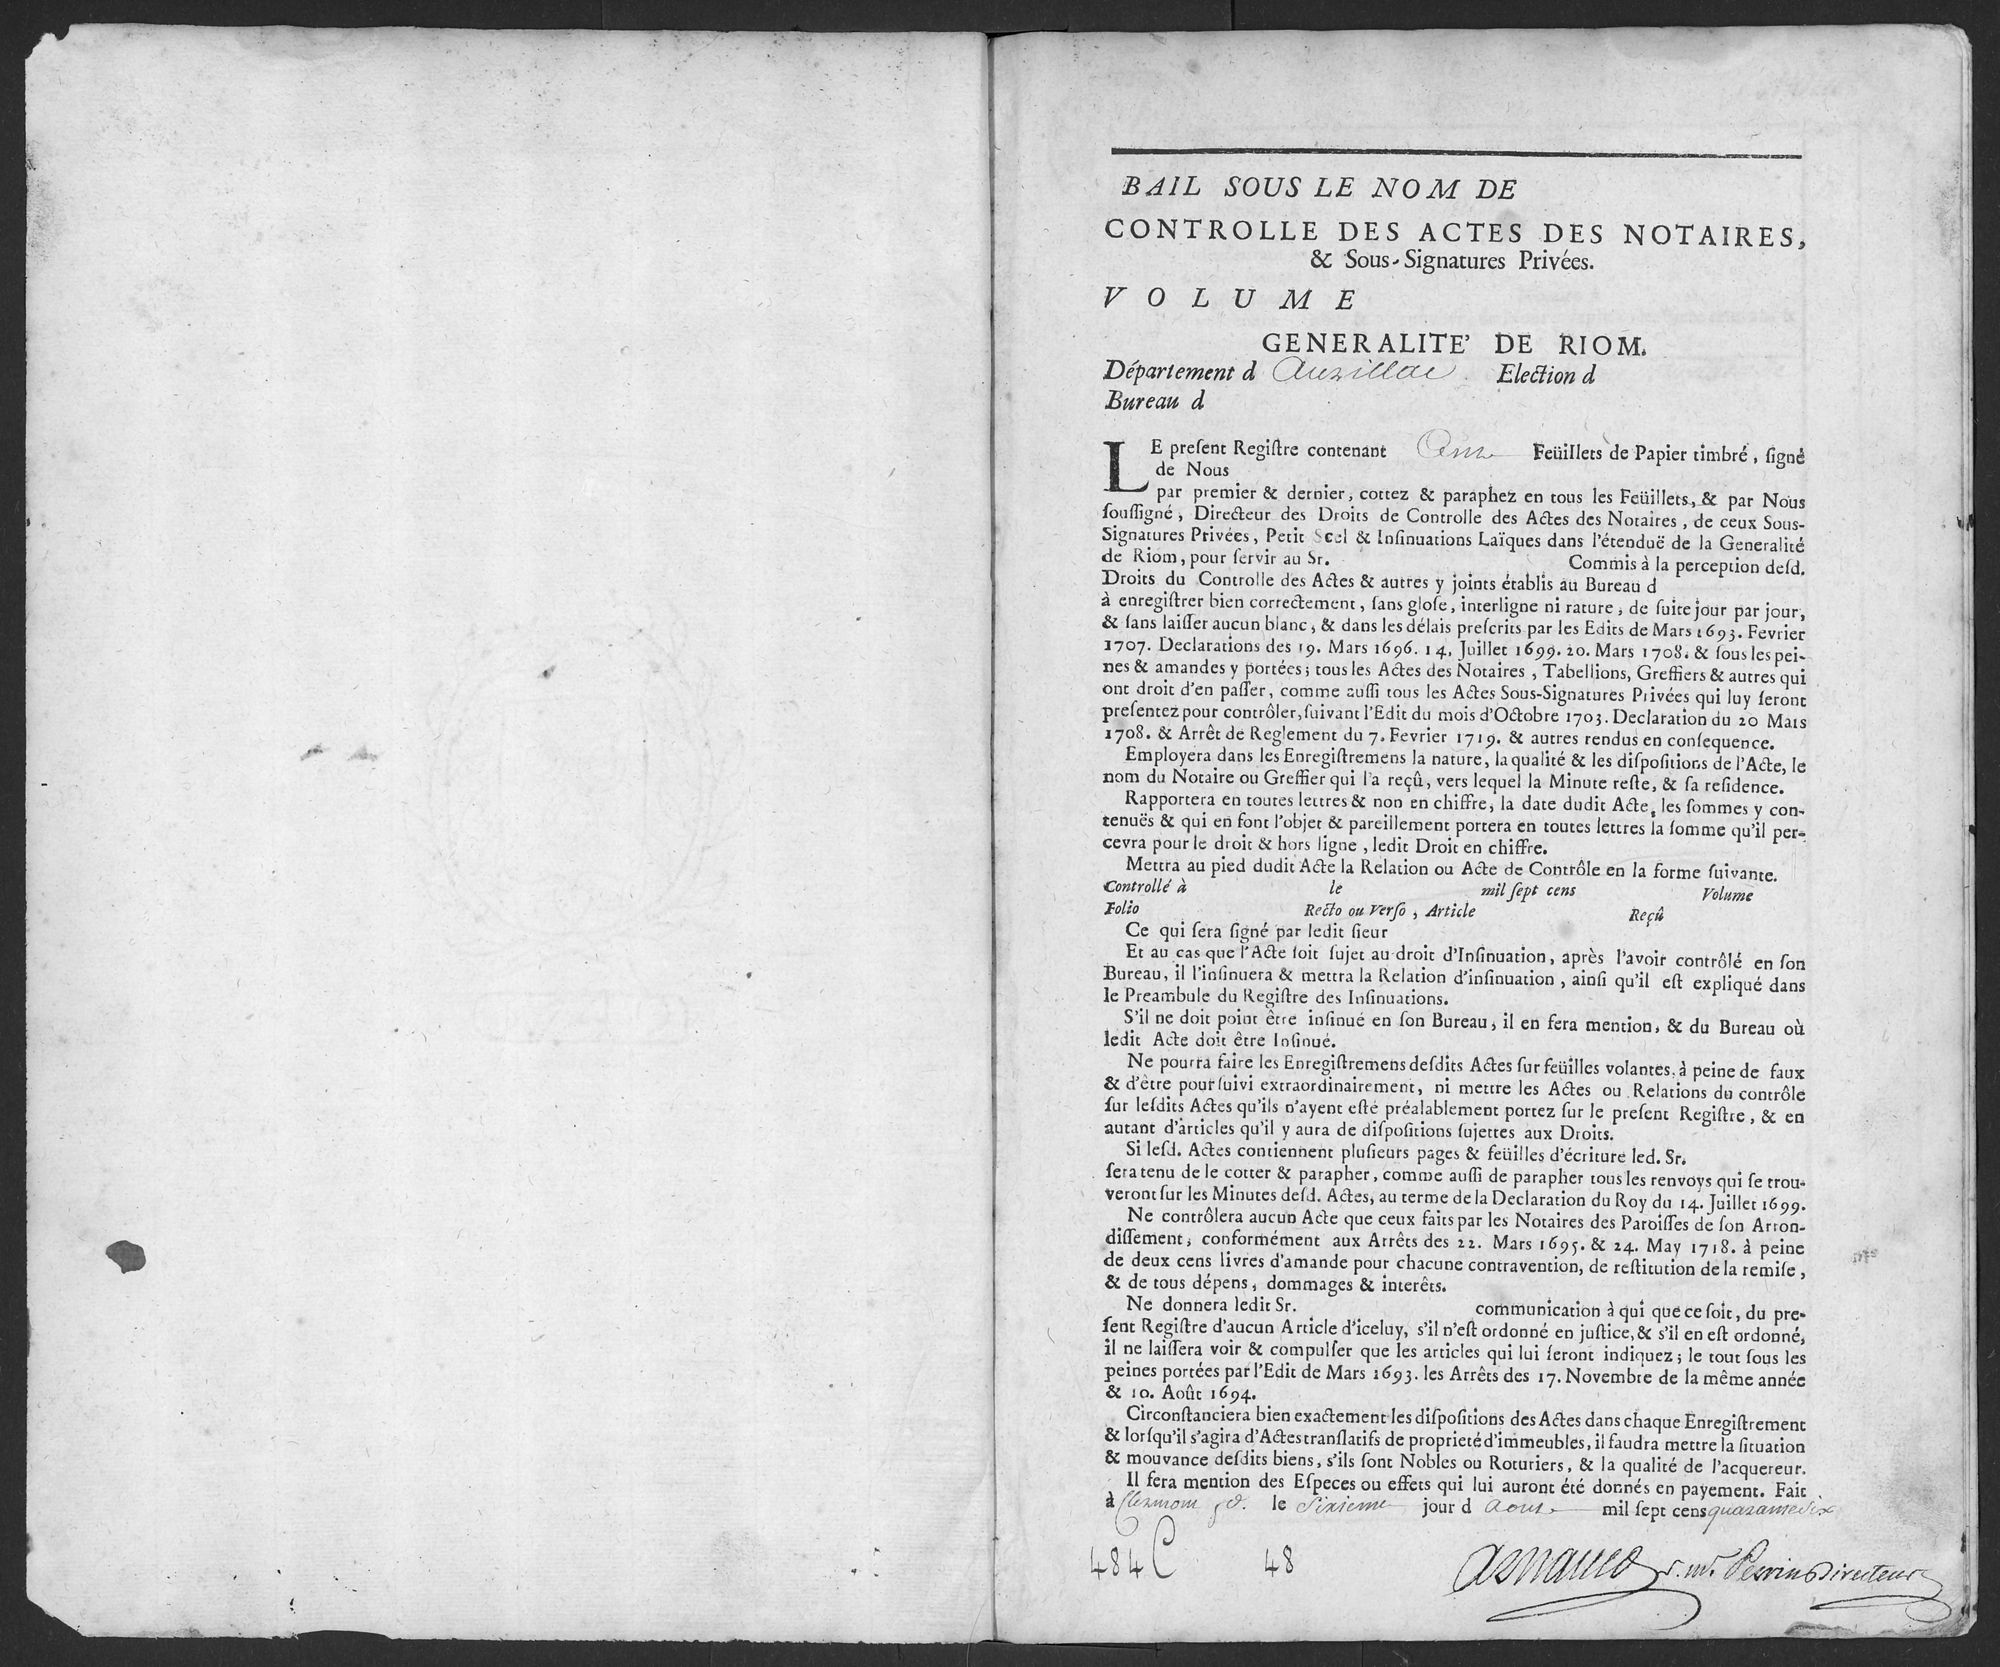 BAIL SOUS LE NOM DE
CONTROLLE DES ACTES DES NOTAIRES,
& Sous-Signatures Privées.
VOLUME
GENERALITE' DE RIOM.
Département d Aurillac Election d
Bureau d
LE preſent Regiſtre contenant Cent Feüillets de Papier timbré, ſigné
de Nous
par premier & dernier, cottez & paraphez en tous les Feüillets, & par Nous
ſouſſigné, Directeur des Droits de Controlle des Actes des Notaires, de ceux Sous-
Signatures Privées, Petit Scel & Inſinuations Laïques dans l'étenduë de la Generalité
de Riom, pour ſervir au Sr. Commis à la perception deſd.
Droits du Controlle des Actes & autres y joints établis au Bureau d
à enregiſtrer bien correctement, ſans gloſe, interligne ni rature, de ſuite jour par jour,
& ſans laiſſer aucun blanc, & dans les délais preſcrits par les Edits de Mars 1693. Fevrier
1707. Declarations des 19. Mars 1696. 14. Juillet 1699. 20. Mars 1708. & ſous les pei-
nes & amandes y portées; tous les Actes des Notaires, Tabellions, Greffiers & autres qui
ont droit d'en paſſer, comme auſſi tous les Actes Sous-Signatures Privées qui luy ſeront
preſentez pour contrôler, ſuivant l'Edit du mois d'Octobre 1703. Declaration du 20 Mars
1708. & Arrêt de Reglement du 7. Fevrier 1719. & autres rendus en conſequence.
Employera dans les Enregiſtremens la nature, la qualité & les diſpoſitions de l'Acte, le
nom du Notaire ou Greffier qui l'a reçû, vers lequel la Minute reſte, & ſa reſidence.
Rapportera en toutes lettres & non en chiffre, la date dudit Acte, les ſommes y con-
tenuës & qui en font l'objet & pareillement portera en toutes lettres la ſomme qu'il per-
cevra pour le droit & hors ligne, ledit Droit en chiffre.
Mettra au pied dudit Acte la Relation ou Acte de Contrôle en la forme ſuivante.
Controllé à le mil ſept cens Volume
Folio Recto ou Verſo, Article Reçû
Ce qui ſera ſigné par ledit ſieur
Et au cas que l'Acte ſoit ſujet au droit d'Inſinuation, après l'avoir contrôlé en ſon
Bureau, il l'inſinuera & mettra la Relation d'inſinuation, ainſi qu'il eſt expliqué dans
le Preambule du Regiſtre des Inſinuations.
S'il ne doit point être inſinué en ſon Bureau, il en fera mention, & du Bureau où
ledit Acte doit être Inſinué.
Ne pourra faire les Enregiſtremens deſdits Actes ſur feüilles volantes, à peine de faux
& d'être pourſuivi extraordinairement, ni mettre les Actes ou Relations du contrôle
ſur leſdits Actes qu'ils n'ayent eſté préalablement portez ſur le preſent Regiſtre, & en
autant d'articles qu'il y aura de diſpoſitions ſujettes aux Droits.
Si leſd. Actes contiennent pluſieurs pages & feüilles d'écriture led. Sr.
ſera tenu de le cotter & parapher, comme auſſi de parapher tous les renvoys qui ſe trou-
veront ſur les Minutes deſd. Actes, au terme de la Declaration du Roy du 14. Juillet 1699.
Ne contrôlera aucun Acte que ceux faits par les Notaires des Paroiſſes de ſon Arron-
diſſement, conformément aux Arrêts des 22. Mars 1695. & 24. May 1718. à peine
de deux cens livres d'amande pour chacune contravention, de reſtitution de la remiſe,
& de tous dépens, dommages & interêts.
Ne donnera ledit Sr. communication à qui que ce ſoit, du pre-
ſent Regiſtre d'aucun Article d'iceluy, s'il n'eſt ordonné en juſtice, & s'il en eſt ordonné,
il ne laiſſera voir & compulſer que les articles qui lui ſeront indiquez; le tout ſous les
peines portées par l'Edit de Mars 1693. les Arrêts des 17. Novembre de la même année
& 10. Août 1694.
Circonſtanciera bien exactement les diſpoſitions des Actes dans chaque Enregiſtrement
& lorſqu'il s'agira d'Actes tranſlatifs de proprieté d'immeubles, il faudra mettre la ſituation
& mouvance deſdits biens, s'ils ſont Nobles ou Roturiers, & la qualité de l'acquereur.
Il fera mention des Eſpeces ou effets qui lui auront été donnés en payement. Fait
à Clermont fd. le Sixieme jour d Aout mil ſept cens quarante Six
484 C 48
Arnauld Perrin Directeur